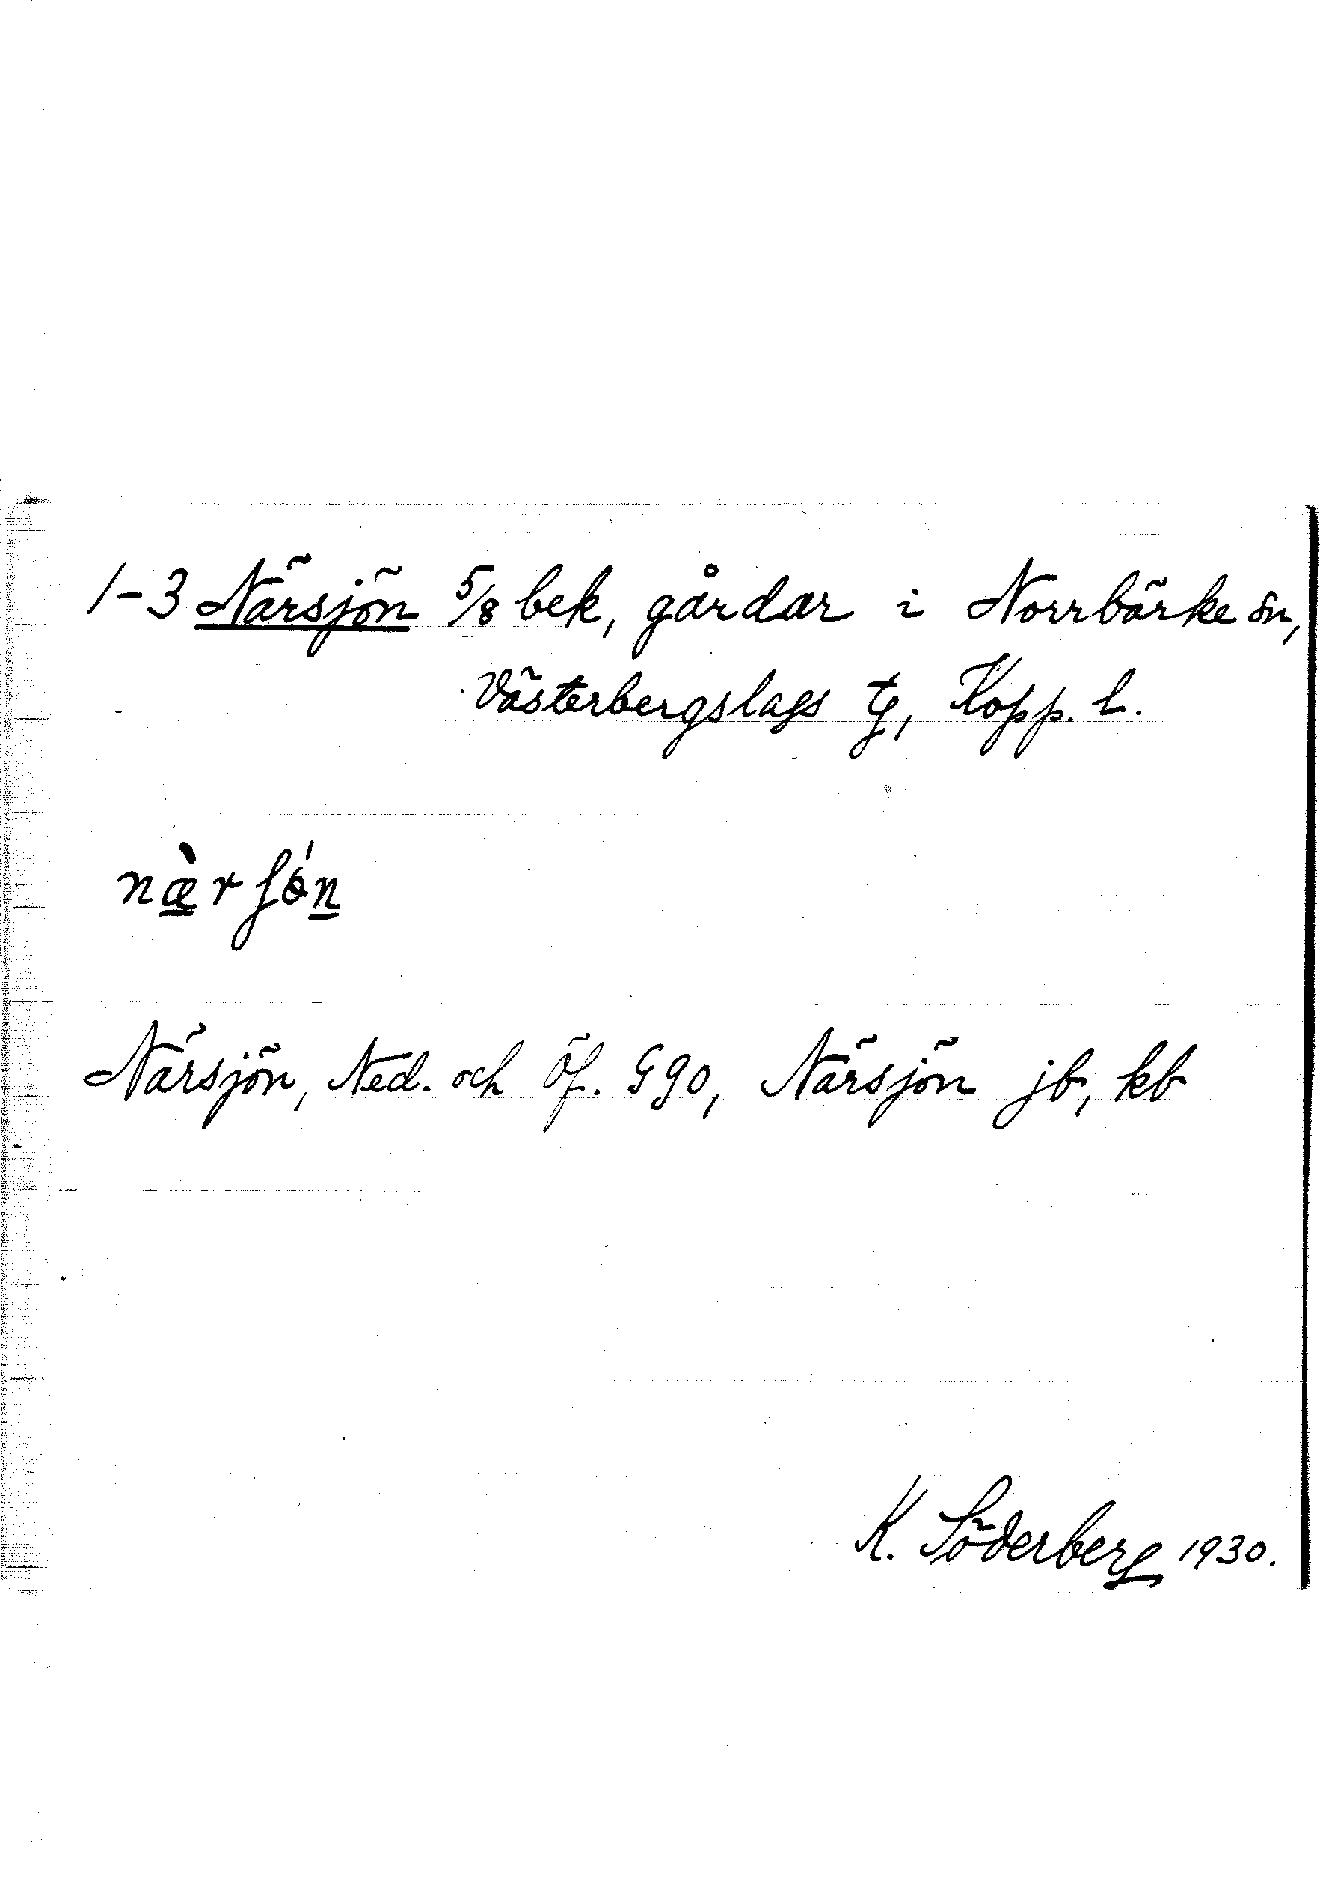 1-3 Närsjön 5/8 bek, gårdar i Norrbärke sn,
Västerbergslags tg, Kopp. l.
næ̀rʃǿn
Närsjön, Ned. och Öf. G90, Närsjön jb, kb
K. Söderberg 1930.